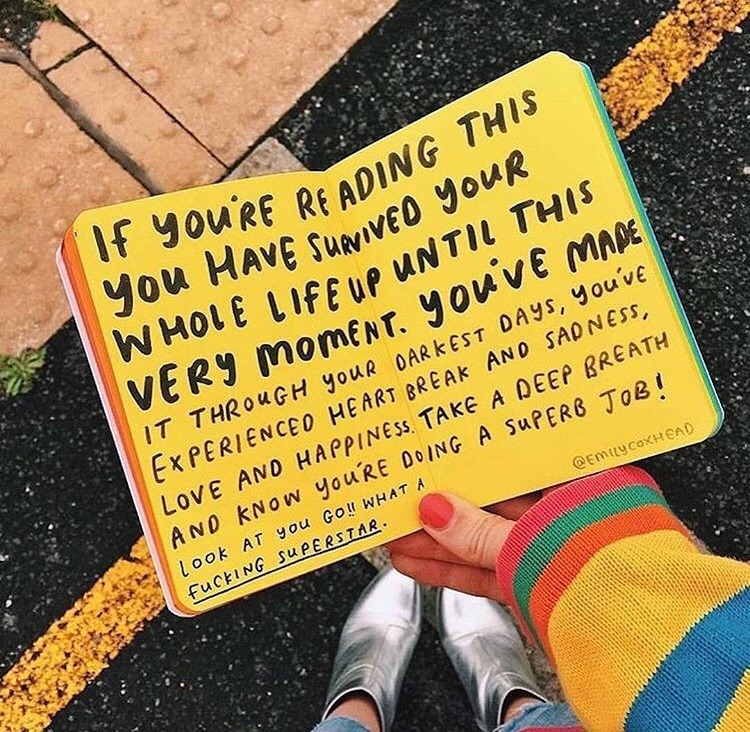 IF YOU'RE READING THIS
YOU HAVE SURVIVED YOUR
WHOLE LIFE UP UNTIL THIS
VERY MOMENT. YOU'VE MADE
IT THROUGH YOUR DARKEST DAYS, YOU'VE
EXPERIENCED HEART BREAK AND SADNESS,
LOVE AND HAPPINESS. TAKE A DEEP BREATH
AND KNOW YOU'RE DOING A SUPERB JOB!
LOOK AT YOU GO!! WHAT A
FUCKING SUPERSTAR.
@EMILYCOXHEAD